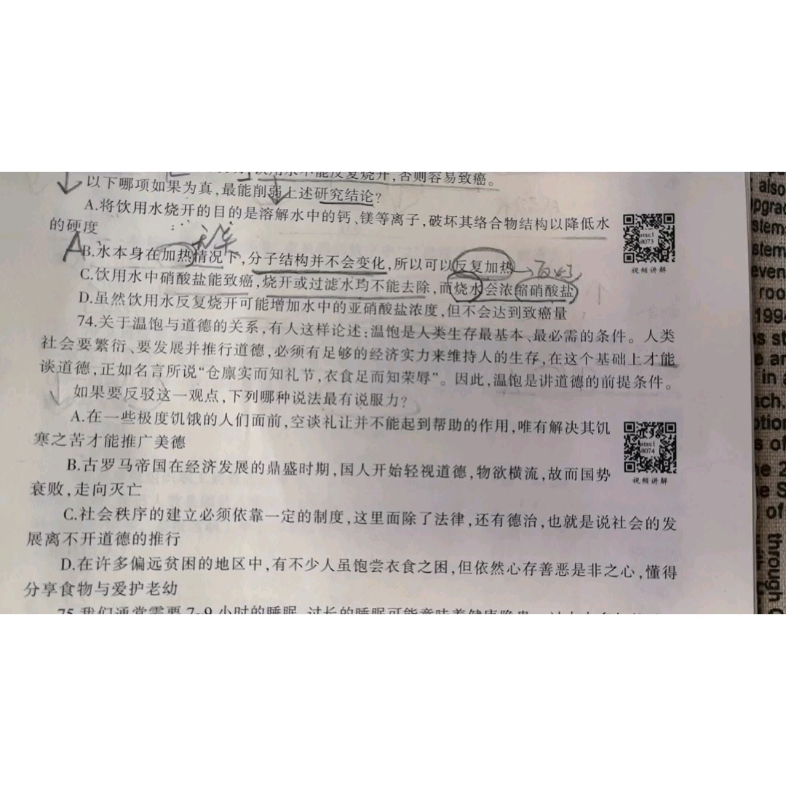 饮用水不能反复烧开,否则容易致癌。
以下哪项如果为真,最能削弱上述研究结论?
A.将饮用水烧开的目的是溶解水中的钙、镁等离子,破坏其络合物结构以降低水
的硬度
A
B.水本身在加热情况下,分子结构并不会变化,所以可以反复加热
C.饮用水中硝酸盐能致癌,烧开或过滤水均不能去除,而烧水会浓缩硝酸盐
D.虽然饮用水反复烧开可能增加水中的亚硝酸盐浓度,但不会达到致癌量
视频讲解
74.关于温饱与道德的关系,有人这样论述:温饱是人类生存最基本、最必需的条件。人类
社会要繁衍、要发展并推行道德,必须有足够的经济实力来维持人的生存,在这个基础上才能
谈道德,正如名言所说“仓廪实而知礼节,衣食足而知荣辱”。因此,温饱是讲道德的前提条件。
如果要反驳这一观点,下列哪种说法最有说服力?
A.在一些极度饥饿的人们面前,空谈礼让并不能起到帮助的作用,唯有解决其饥
寒之苦才能推广美德
B.古罗马帝国在经济发展的鼎盛时期,国人开始轻视道德,物欲横流,故而国势
衰败,走向灭亡
视频讲解
C.社会秩序的建立必须依靠一定的制度,这里面除了法律,还有德治,也就是说社会的发
展离不开道德的推行
D.在许多偏远贫困的地区中,有不少人虽饱尝衣食之困,但依然心存善恶是非之心,懂得
分享食物与爱护老幼
75.我们通常需要7-9小时的睡眠
also
stem
even
roo
199
in
ch.
of
of
through